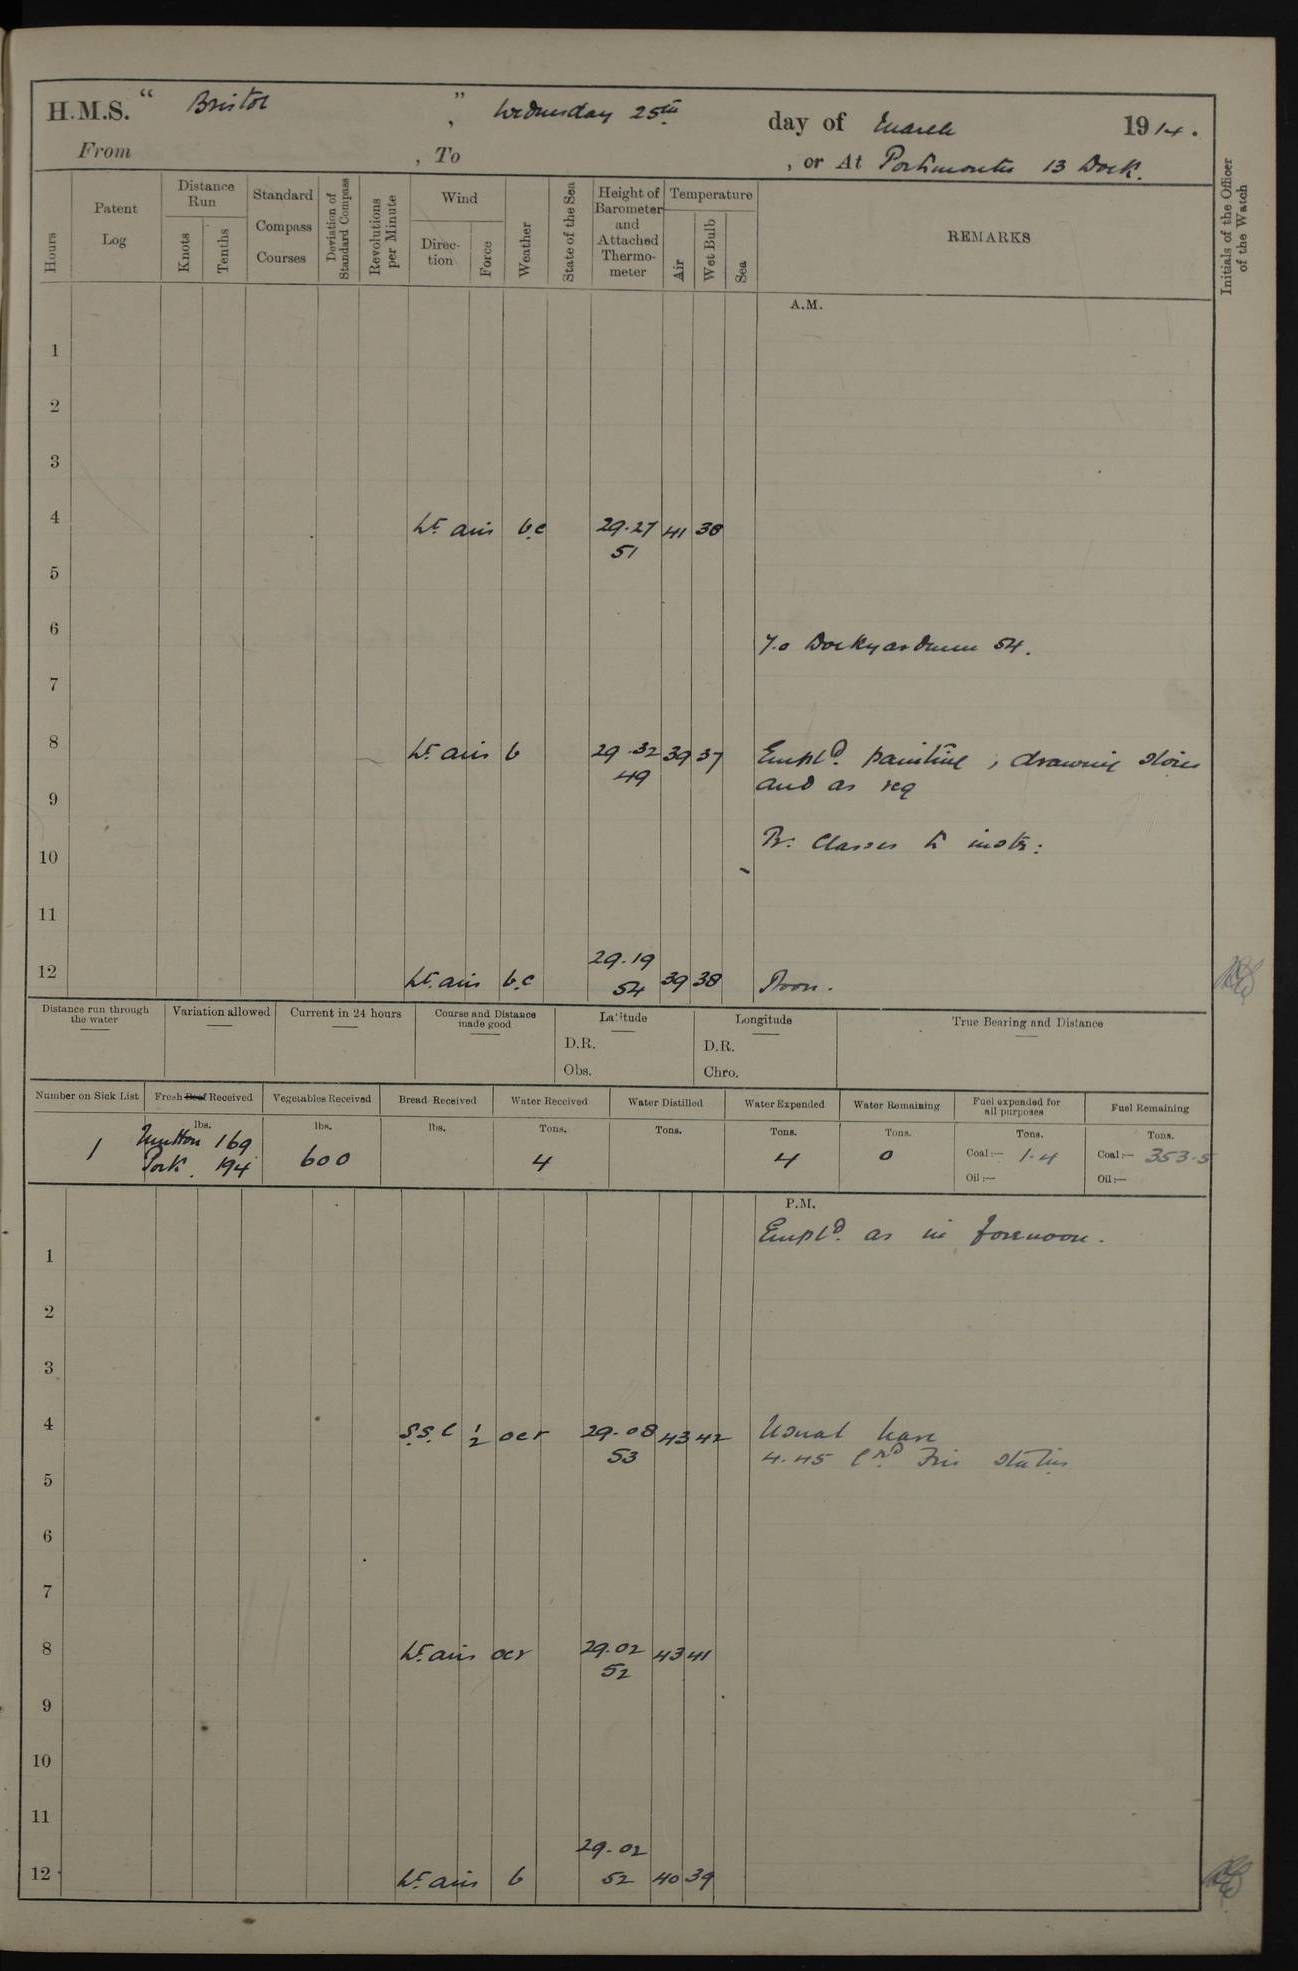 H.M.S. “ Bristol ” , Wednesday 25th day of March 1914.
From , To , or At Portsmouth 13 Dock.
Hours
Patent Log
Distance Run
Knots
Tenths
Standard Compass Courses
Deviation of Standard Compass
Revolutions per Minute
Wind
Direc-tion
Force
Weather
State of the Sea
Height of Barometer and Attached Thermo-meter
Temperature
Air
Wet Bulb
Sea
REMARKS
Initials of the Officer of the Watch
A.M.
1
2
3
4 Lt airs b.c 29.27 41 38
51
5
6
7.0 Dockyardmen 54.
7
8 Lt airs b 29.32 39 37 Empld. painting, drawing stores
49 and as req
9
Br: Classes to instr:
10
11
29.19
12 Lt. airs b.c 54 39 38 Noon.
Distance run through the water
Variation allowed
Current in 24 hours
Course and Distance made good
Latitude
D.R.
Obs.
Longitude
D.R.
Chro.
True Bearing and Distance
Number on Sick List
Fresh Beef Received
Vegetables Received
Bread Received
Water Received
Water Distilled
Water Expended
Water Remaining
Fuel expended for all purposes
Fuel Remaining
lbs. lbs. lbs. Tons. Tons. Tons. Tons. Tons. Tons.
1 Mutton 169 600 4 4 0 Coal:— 1.4 Coal:— 353.5
Pork. 194 Oil:— Oil:—
P.M.
Empld. as in forenoon.
1
2
3
4 S.S.E 1/2 ocr 29.08 43 42 Usual leave
53 4.45 Fire Stations
5
6
7
8 Lt. airs ocr 29.02 43 41
52
9
10
11
29.02
12 Lt. airs b 52 40 39